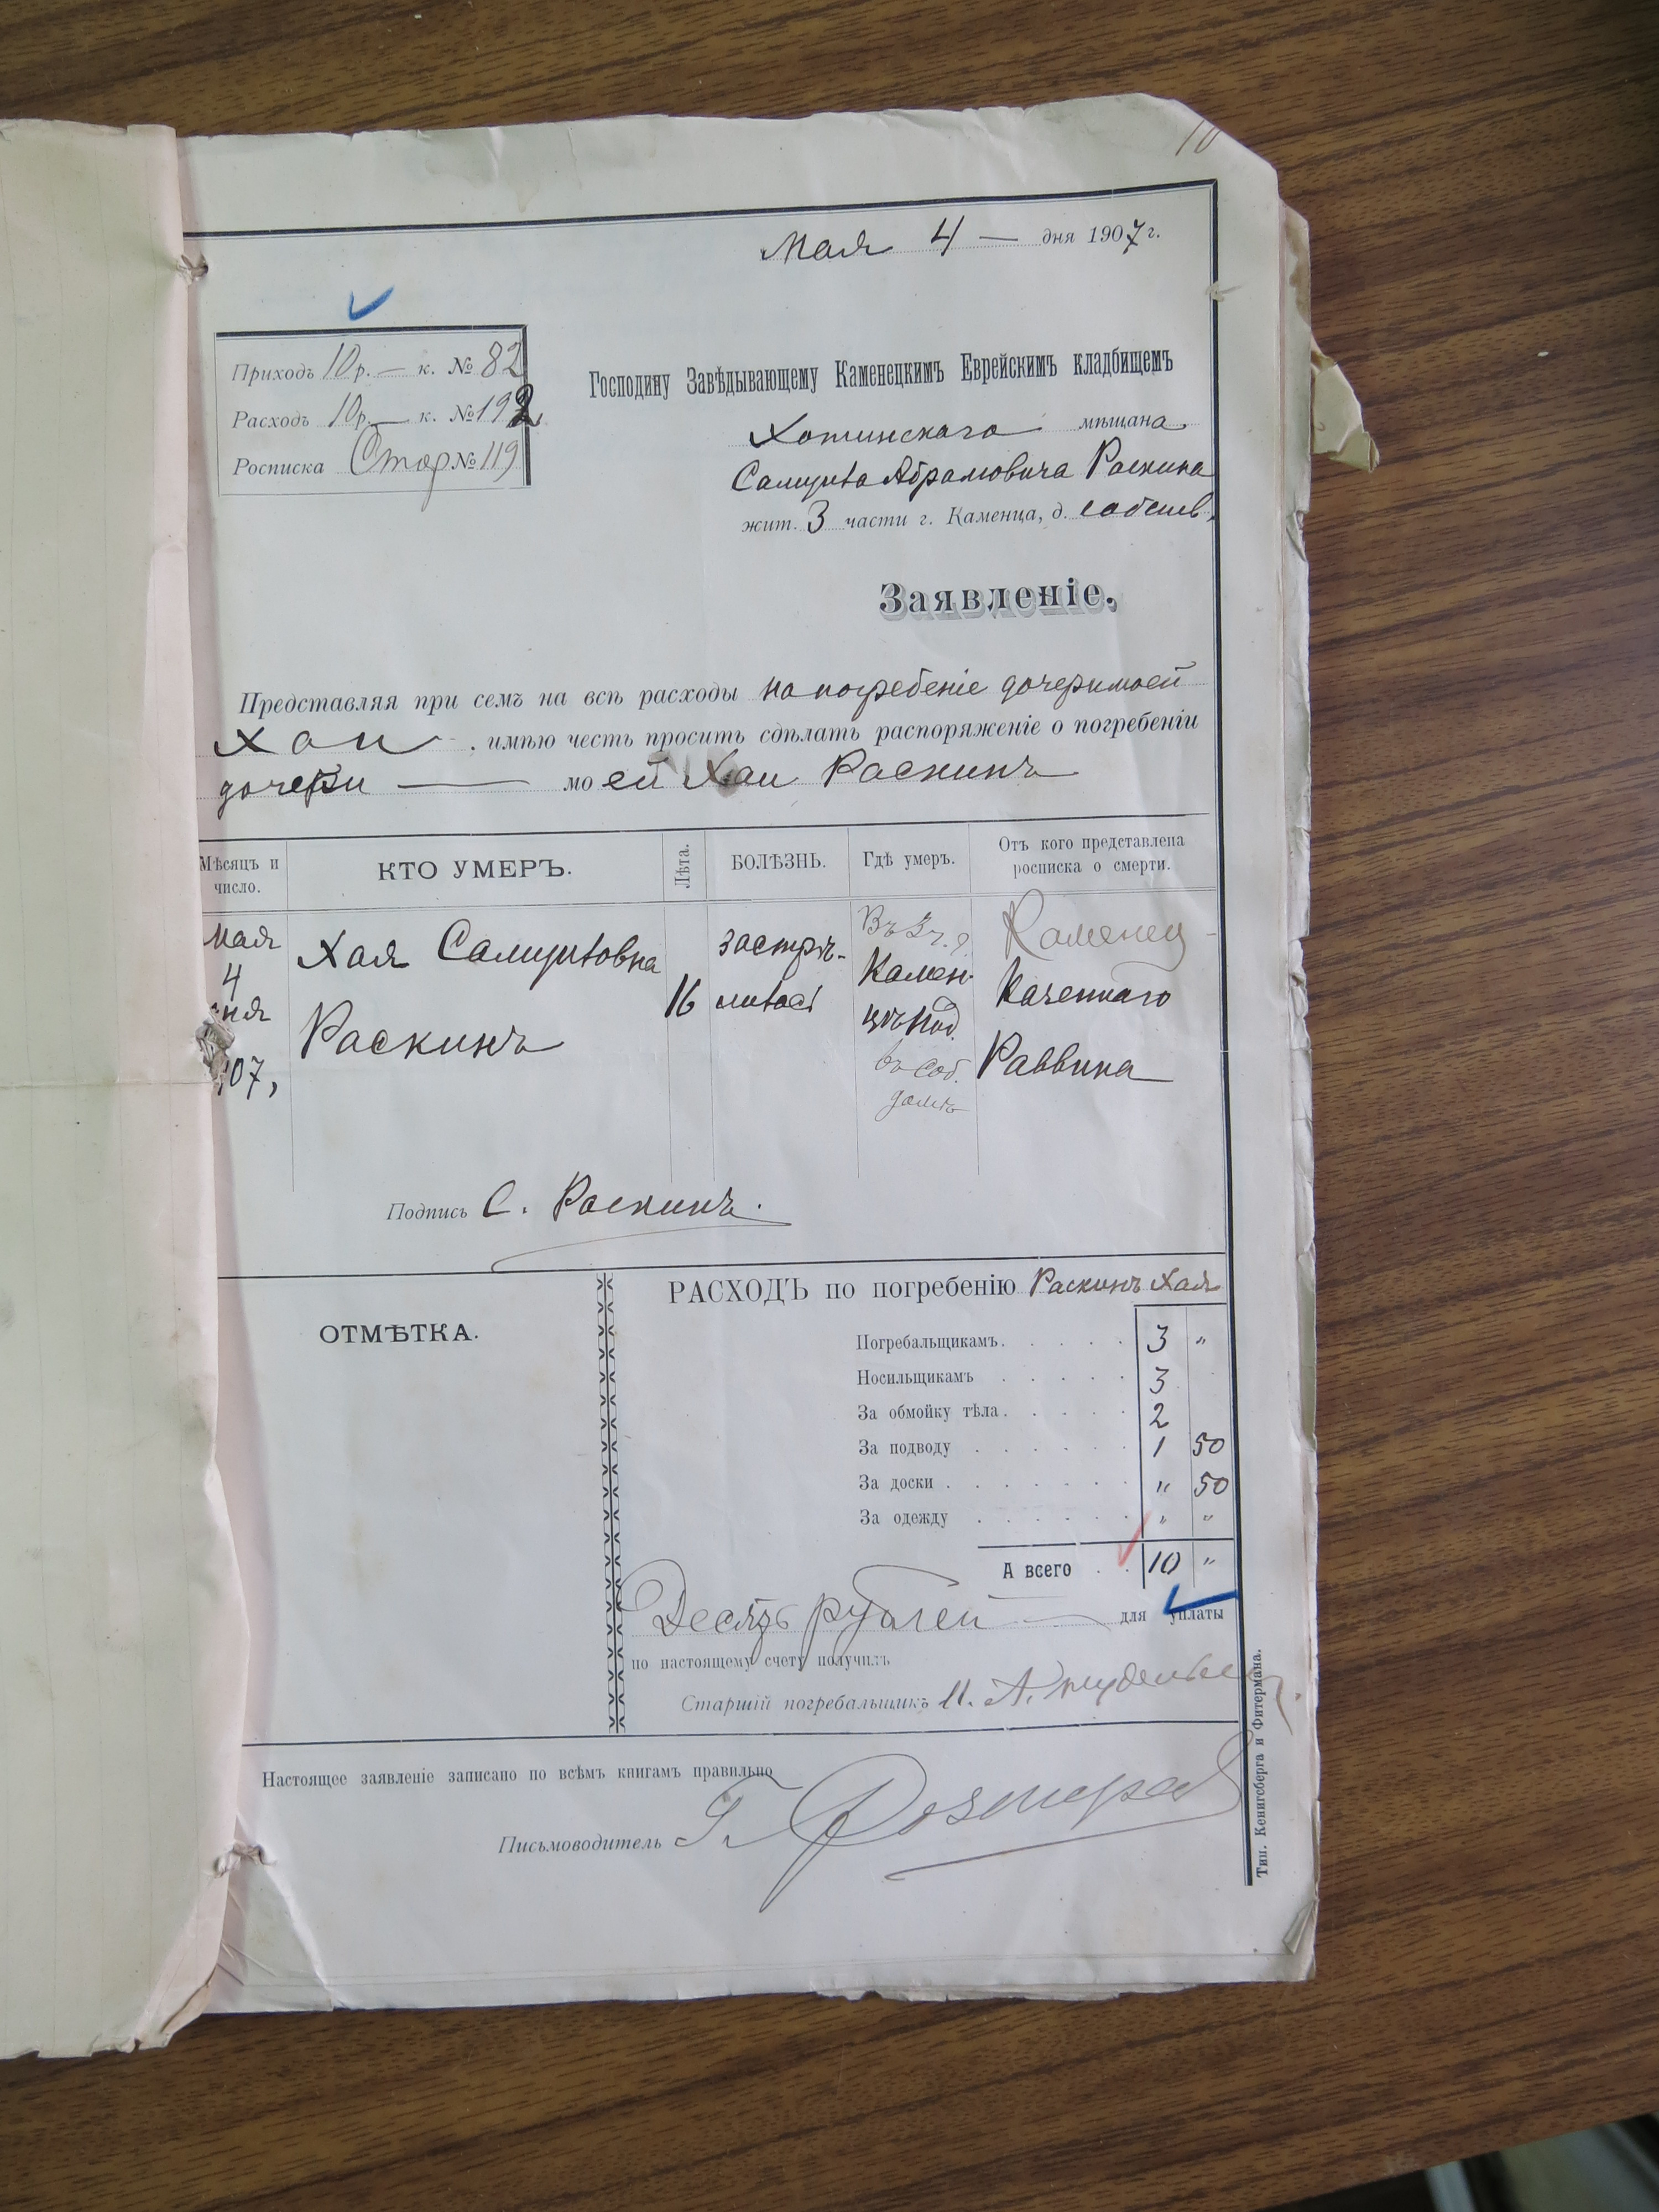 10
Мая 4 — дня 1907 г.
Приходъ 10 р. — к. № 82
Расходъ 10 р. — к. № 192
Росписка Стор № 119
Господину Завѣдывающему Каменецкимъ Еврейскимъ кладбищемъ
Хотинскаго мѣщана
Самуила Абрамовича Раскина
жит. 3 части г. Каменца, д. собств.
Заявленіе.
Представляя при семъ на всѣ расходы на погребеніе дочери моей
Хаи имѣю честь просить сдѣлать распоряженіе о погребеніи
дочери — моей Хаи Раскинъ
Мѣсяцъ и число. КТО УМЕРЪ. Лѣта. БОЛѢЗНЬ. Гдѣ умеръ. Отъ кого представлена росписка о смерти.
мая 4 дня 07, Хая Самуиловна Раскинъ 16 застрѣлилась Въ 3 ч. Каменцѣ Под. въ соб. домѣ Каменец- Казеннаго Раввина
Подпись С. Раскинъ.
ОТМѢТКА.
РАСХОДЪ по погребенію Раскинъ Хая
Погребальщикамъ. 3 "
Носильщикамъ 3
За обмойку тѣла. 2
За подводу 1 50
За доски " 50
За одежду " "
А всего 10 "
Десять рублей — для уплаты
по настоящему счету получилъ
Старшій погребальщикъ
Настоящее заявленіе записано по всѣмъ книгамъ правильно
Письмоводитель Г.
Тип. Кенигсберга и Фитермана.